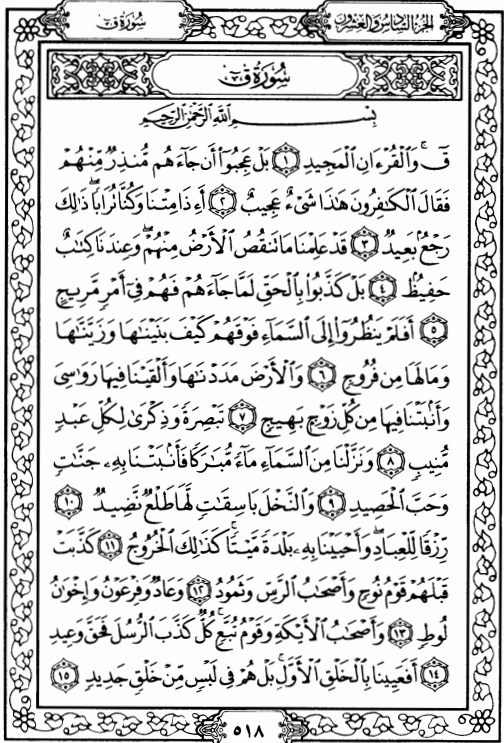 سُورَةُ قٓ
الجزء السادس والعشرون
سُورَةُ قٓ
بِسْمِ ٱللَّهِ ٱلرَّحْمَٰنِ ٱلرَّحِيمِ
قٓ ۚ وَٱلْقُرْءَانِ ٱلْمَجِيدِ ١ بَلْ عَجِبُوٓا۟ أَن جَآءَهُم مُّنذِرٌ مِّنْهُمْ
فَقَالَ ٱلْكَٰفِرُونَ هَٰذَا شَىْءٌ عَجِيبٌ ٢ أَءِذَا مِتْنَا وَكُنَّا تُرَابًا ۖ ذَٰلِكَ
رَجْعٌۢ بَعِيدٌ ٣ قَدْ عَلِمْنَا مَا تَنقُصُ ٱلْأَرْضُ مِنْهُمْ ۖ وَعِندَنَا كِتَٰبٌ
حَفِيظٌۢ ٤ بَلْ كَذَّبُوا۟ بِٱلْحَقِّ لَمَّا جَآءَهُمْ فَهُمْ فِىٓ أَمْرٍ مَّرِيجٍ
٥ أَفَلَمْ يَنظُرُوٓا۟ إِلَى ٱلسَّمَآءِ فَوْقَهُمْ كَيْفَ بَنَيْنَٰهَا وَزَيَّنَّٰهَا
وَمَا لَهَا مِن فُرُوجٍ ٦ وَٱلْأَرْضَ مَدَدْنَٰهَا وَأَلْقَيْنَا فِيهَا رَوَٰسِىَ
وَأَنۢبَتْنَا فِيهَا مِن كُلِّ زَوْجٍۭ بَهِيجٍ ٧ تَبْصِرَةً وَذِكْرَىٰ لِكُلِّ عَبْدٍ
مُّنِيبٍ ٨ وَنَزَّلْنَا مِنَ ٱلسَّمَآءِ مَآءً مُّبَٰرَكًا فَأَنۢبَتْنَا بِهِۦ جَنَّٰتٍ
وَحَبَّ ٱلْحَصِيدِ ٩ وَٱلنَّخْلَ بَاسِقَٰتٍ لَّهَا طَلْعٌ نَّضِيدٌ ١٠
رِّزْقًا لِّلْعِبَادِ ۖ وَأَحْيَيْنَا بِهِۦ بَلْدَةً مَّيْتًا ۚ كَذَٰلِكَ ٱلْخُرُوجُ ١١ كَذَّبَتْ
قَبْلَهُمْ قَوْمُ نُوحٍ وَأَصْحَٰبُ ٱلرَّسِّ وَثَمُودُ ١٢ وَعَادٌ وَفِرْعَوْنُ وَإِخْوَٰنُ
لُوطٍ ١٣ وَأَصْحَٰبُ ٱلْأَيْكَةِ وَقَوْمُ تُبَّعٍ ۚ كُلٌّ كَذَّبَ ٱلرُّسُلَ فَحَقَّ وَعِيدِ
١٤ أَفَعَيِينَا بِٱلْخَلْقِ ٱلْأَوَّلِ ۚ بَلْ هُمْ فِى لَبْسٍ مِّنْ خَلْقٍ جَدِيدٍ ١٥
٥١٨